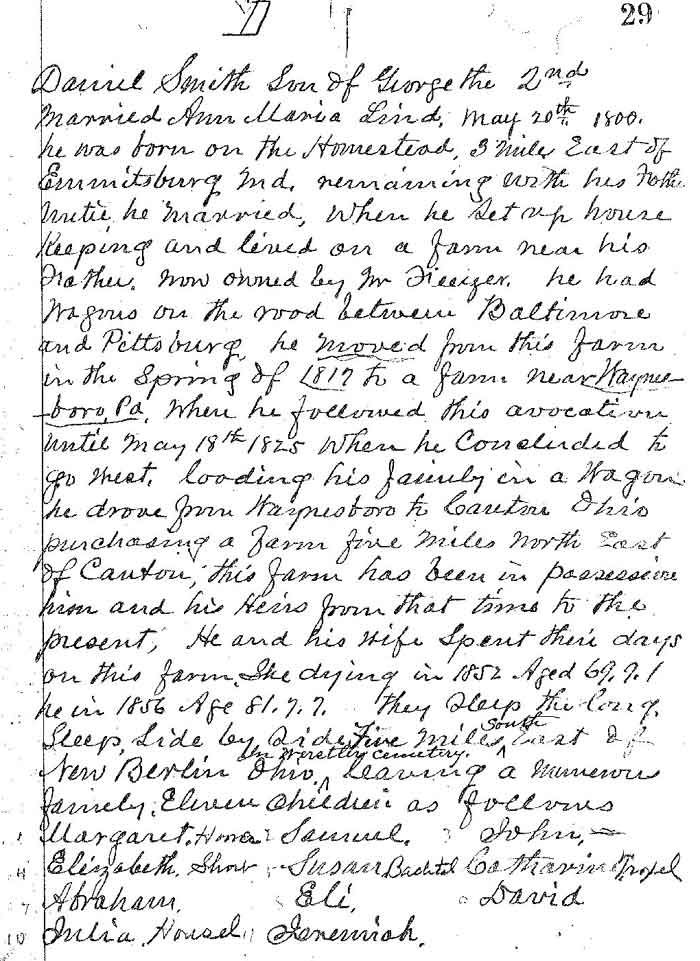 29
Daniel Smith Son of George the 2nd
Married Ann Maria Lind, May 20th 1800.
he was born on the Homestead, 3 mile East of
Emmitsburg Md. remaining with his Father
until he Married, When he Set up house
Keeping and lived on a farm near his
Father. now owned by Mr he had
Wagons on the road between Baltimore
and Pittsburg, he moved from this farm
in the Spring of 1817 to a farm near Waynes-
boro, Pa, When he followed this avocation
until May 18th 1825 When he Concluded to
go West. loading his family in a Wagon
he drove from Waynesboro to Canton Ohio
purchasing a Farm five Miles North East
of Canton, this farm has been in possession
him and his Heirs from that time to the
present, He and his Wife Spent their days
on this farm, She dying in 1852 Aged 69.9.1
he in 1856 Age 81.7.7. they Sleep the long
Sleep, Side by Side Five Miles South East of
New Berlin Ohio, In Werstler Cemetery. leaving a Numerous
family, Eleven Children as follows
1 Margaret. Hoover 2 Samuel. 3 John,
4 Elizabeth. Shorb Susan Bachtel Catharine Tropel
7 Abraham. 8 Eli, 9 David
10 Julia, Housel Jeremiah.